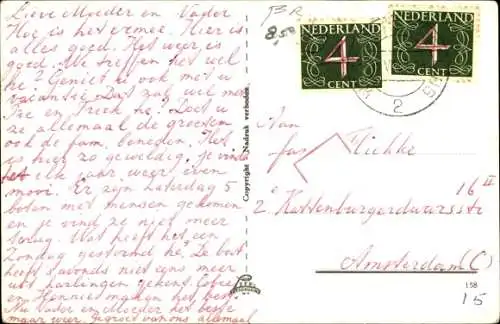 Lieve Moeder en Vader
Hoe is het ermee. Hier is
alles goed. Het weer is
goed. We treffen het wel
hè? Geniet u ook wat u
vacantie. Dat zal wel met
en hè! Doet u
ze allemaal de groeten
ook de fam. beneden. Het
is hier zo geweldig. Je vindt
het elk jaar weer even
mooi. Er zijn Zaterdag 5
boten met mensen gekomen
en je vind ze niet meer
terug. Wat heeft het een
Zondag gestormd hè. De boot
heeft s'avonds niet eens meer
uit harlingen gekund.
en Hennie maken het best.
Nu vader en Moeder het beste
maar weer. gegroet van ons allemaal
Copyright Nadruk verboden
JER
8,50
NEDERLAND
4
CENT
NEDERLAND
4
CENT
2
Aan
fam
16 II
2e Kattenburgerdwarsstr
Amsterdam (C)
158
15